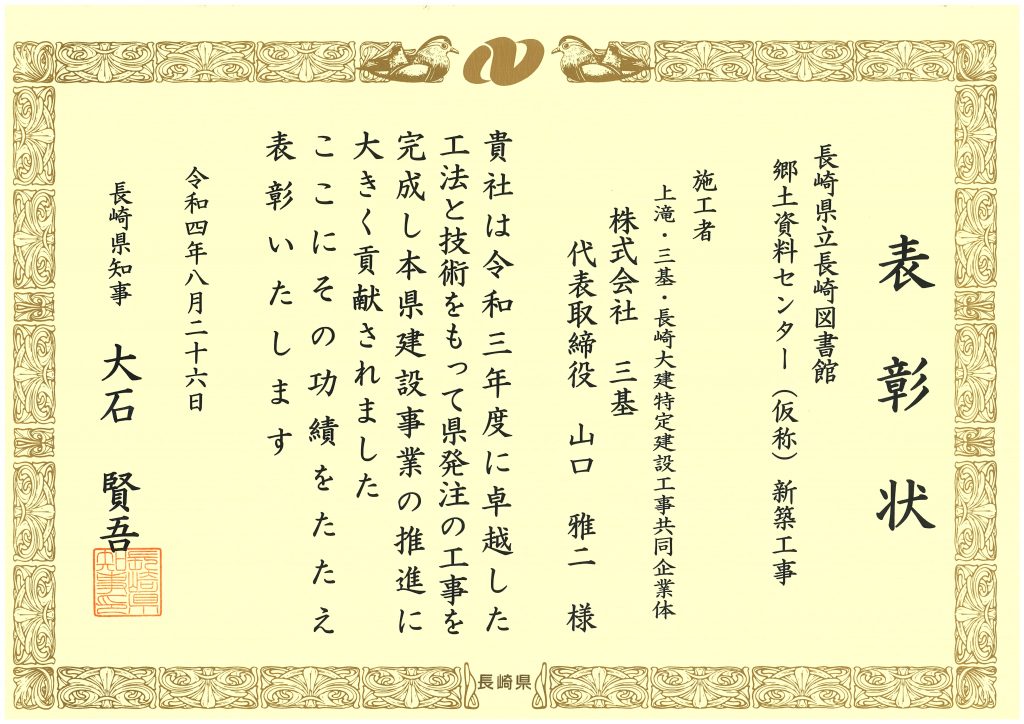 表彰状
長崎県立長崎図書館
郷土資料センター（仮称）新築工事
施工者
上滝・三基・長崎大建特定建設工事共同企業体
株式会社 三基
代表取締役 山口 雅二 様
貴社は令和三年度に卓越した
工法と技術をもって県発注の工事を
完成し本県建設事業の推進に
大きく貢献されました
ここにその功績をたたえ
表彰いたします
令和四年八月二十六日
長崎県知事 大石 賢吾
長崎県知事之印
長崎県